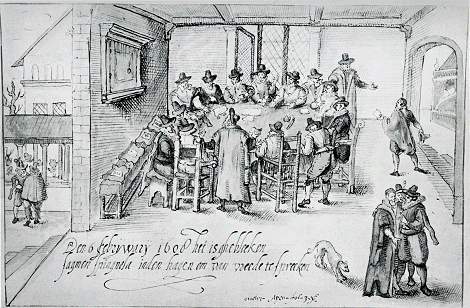 Den 6 febrywary 1608 het is ghebleken
sagmen inden hagen om van vreede te spreeken